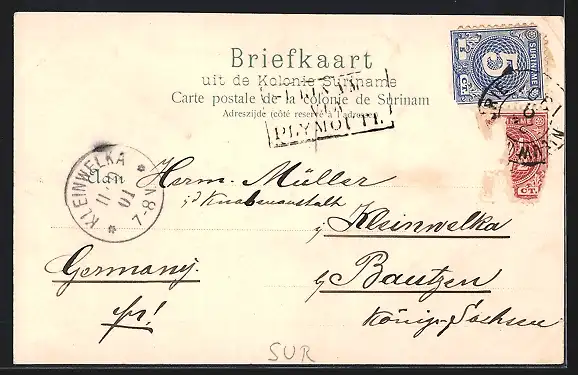 Briefkaart
uit de Kolonie Suriname
Carte postale de la colonie de Surinam
Adreszijde (côté reservé à l'adresse)
SURINAM
VIA
PLYMOUTH
5 CT.
SURINAME
CT.
KLEINWELKA
11
01
7-8V
Aan Herm. Müller
Knabenanstalt
Kleinwelka
Germany. Bautzen
fr! König. Sachsen
SUR